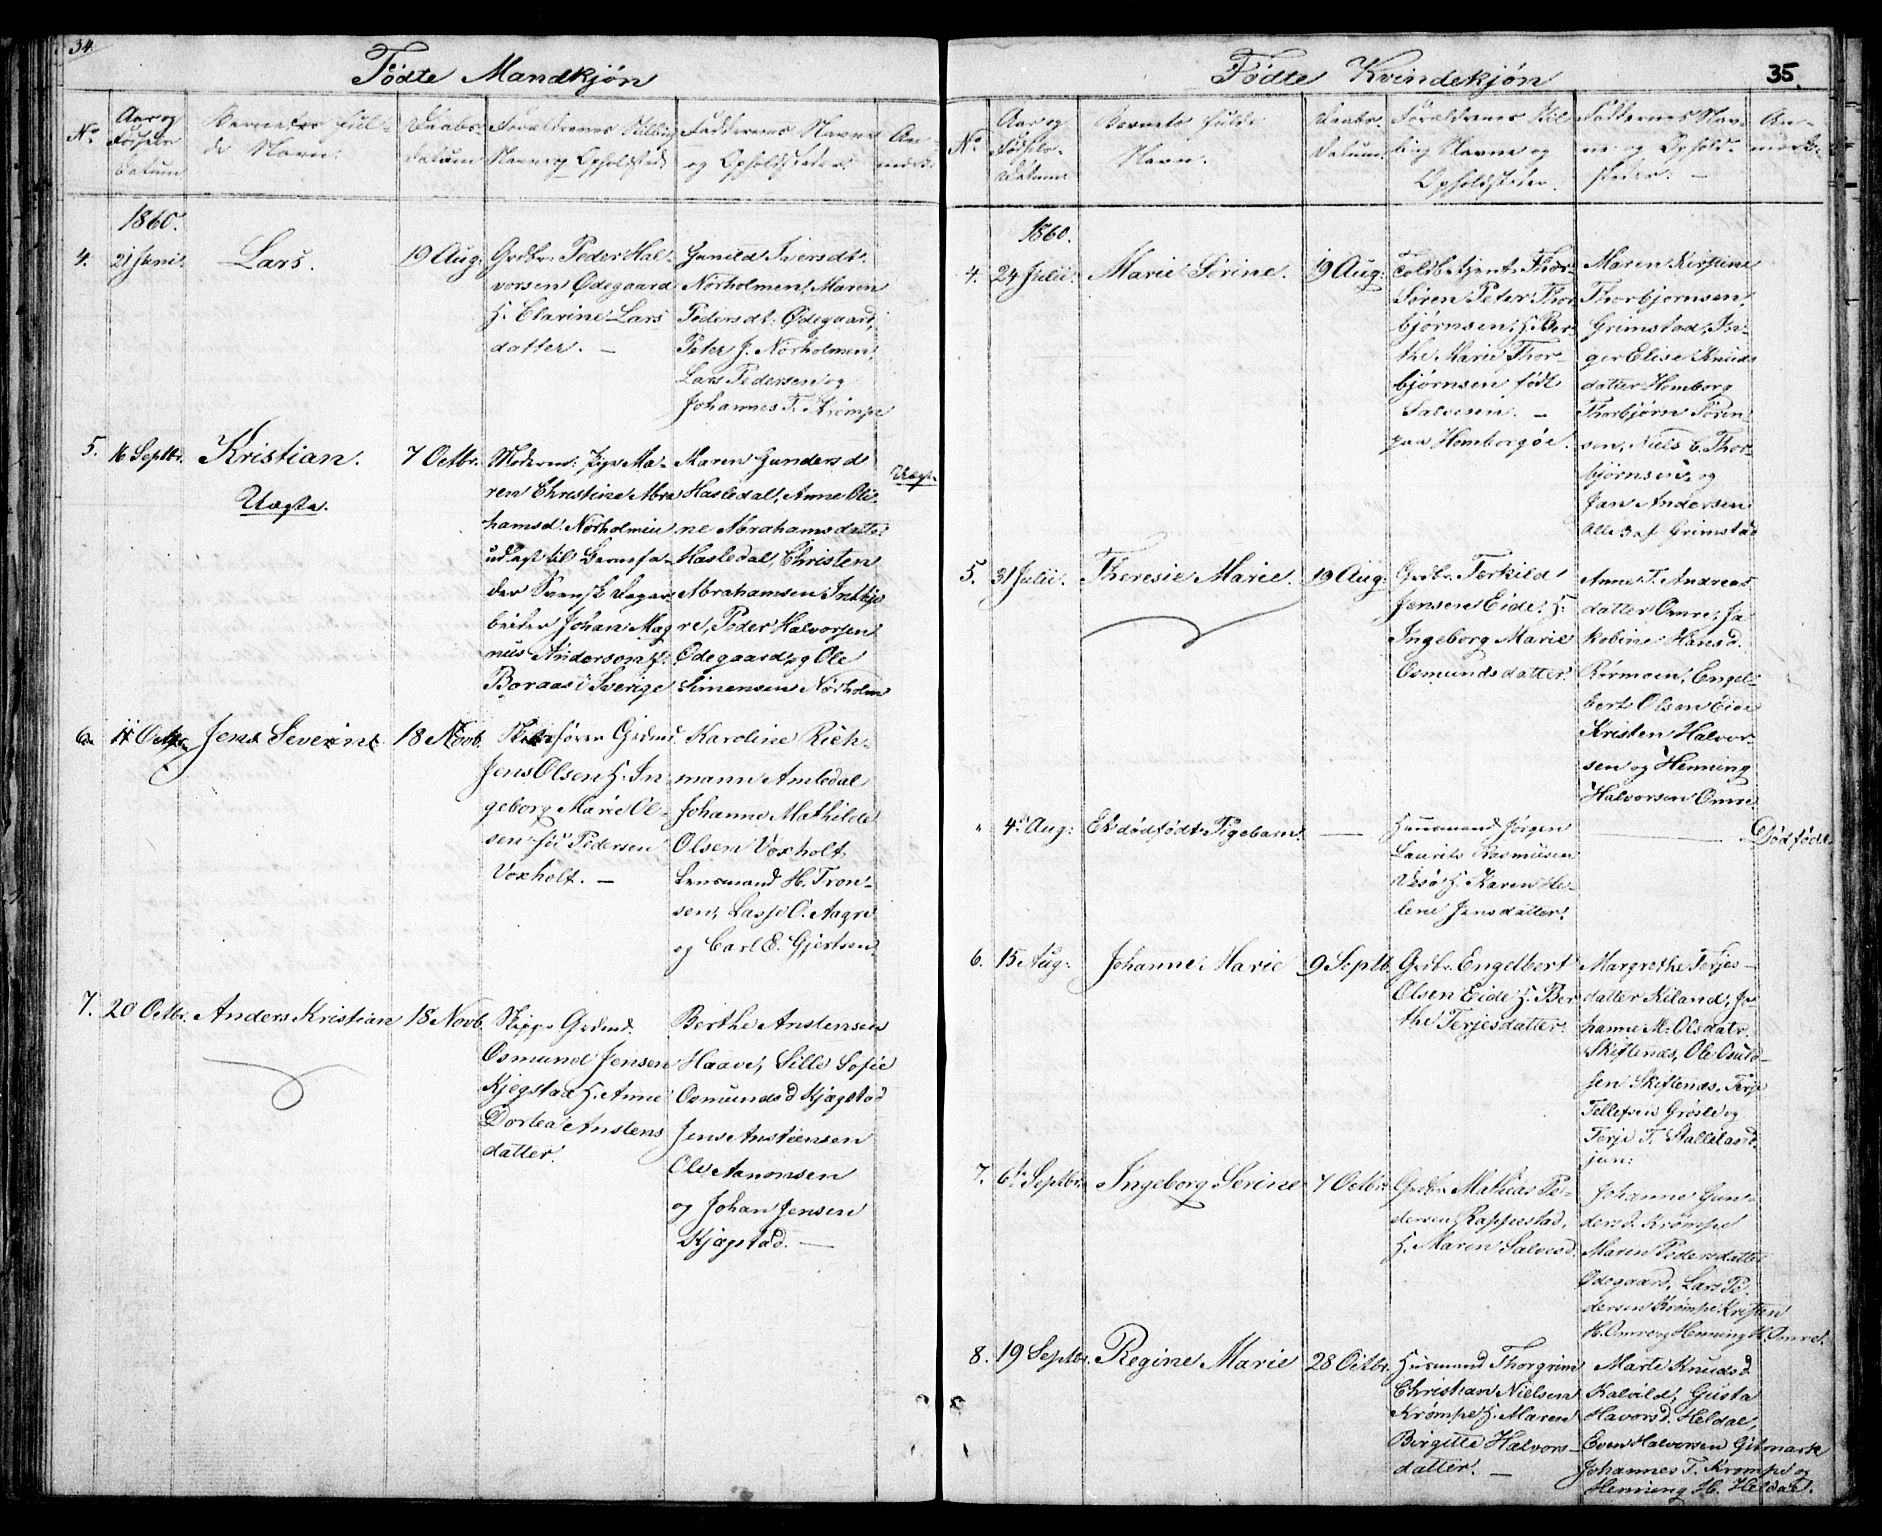 34.
Fødte Mandkjøn
No.
Aar og
Fødsels
Datum
Barnets ful-
de Navn.
Daabs-
datum
Forældrenes Stilling
Navn og Opholdsted
Faddernes Navne
og Opholdssteder.
An-
mærk.
1860.
4. 21 Juni. Lars. 19 Aug:
Grdbr. Peder Hal-
vorsen Ødegaard
H. Clarine Lars
datter. —
Gunild Iversdt.
Nørholmen, Maren
Pedersdt. Ødegaard,
Peter J. Nørholmen,
Lars Pedersen og
Johannes T. Krømpe
5. 16 Septbr. Kristian. 7 Octbr.
Uægte.
Moderen: Pige Ma-
ren Christine Abra
hamsd. Nørholmen
udlagt til Barnefa-
der Svensk Dagar-
beider Johan Mag
nus Anderson H.
Boraas i Sverige
Maren Gundersd
Hasledal, Anne Oli-
ne Abrahamsdatter
Hasledal, Christen
Abrahamsen Indtjø
re, Peder Halvorsen
Ødegaard og Ole
Simensen Nørholm
Uægte
6. 11 Octbr. Jens Severin 18 Novb.
Grdmd.
Jens Olsen H. In-
geborg Marie Ol-
sen fød Pedersen
Voxholt. —
Karoline Rich-
mann Amledal
Johanne Mathilde
Olsen Voxholt
Lensmand H. Tron-
sen, Lasse O. Aagre
og Carl E. Gjertsen.
7. 20 Octbr. Anders Kristian 18 Novb.
Skipp. Grdmd.
Osmund Jensen
Kjegstad H. Anne
Dortea Anstens
datter.
Berthe Anstensen
Haave, Sille Sofie
Osmundsd Kjægstad
Jens Anstensen
Ole Aanonsen
og Johan Jensen
Kjægstad. —
Fødte Kvindekjøn
35.
No.
Aar og
Fødsels-
Datum
Barnets fulde
Navn.
Daabs-
datum.
Forældrenes Stil-
ling Navne og
Opholdssteder.
Faddernes Nav-
ne og Ophold-
steder. —
An-
mærk.
1860.
4. 24 Julii. Marie Serine. 19 Aug:
Toldbetjent Thor-
Søren Peter Thor
bjørnsen, H. Ber-
the Marie Thor-
bjørnsen født
Salvesen. —
paa Homborgøe.
Maren Kirstine
Thorbjørnsen,
Grimstad, In-
ger Elise Knuds
datter Homborg
Thorbjørn Søren-
sen, Niels C. Thor-
bjørnsen, og
Jan Andersen
Alle 3 af Grimstad
5. 31 Julii. Theresie Marie. 19 Aug:
Grdbr. Terkild
Jensen Eide, H.
Ingeborg Marie
Osmundsdatter.
Anne T. Andreas
datter Omre, Ja
kobine Hansd.
Rørmoen, Engel-
bert Olsen Eide
Kristen Halvor-
sen og Henning
Halvorsen Omre
" 4. Aug: Et dødfødt Pigebarn. —
Huusmand Jørgen
Laurits Rasmusen
Vesø H. Karen He-
lene Jensdatter.
— Dødfødt.
6. 15 Aug: Johanne Marie 9 Septb.
Grdbr. Engelbert
Olsen Eide H. Ber
the Terjesdatter.
Margrethe Terjes-
datter Kiland, Jo
hanne M. Olsdatr
Skiftenes, Ole Osuld-
sen Skiftenes, Terje
Tellefsen Grøsle og
Terje T. Stalleland
jun:
7. 6te Septbr. Ingeborg Serine 7 Octbr.
Grdbr. Mathias Pe-
dersen Rappestad,
H. Maren Salvesd.
Johanne Gun-
dersd. Krømpe
Maren Pedersdatter
Ødegaard, Lars Pe-
dersen Krømpe Kristen
H. Omre og Henning H. Omre.
8. 19 Septbr. Regine Marie 28 Octbr.
Husmand Thorgrim
Christian Nielsen
Krømpe H. Maren
Birgitte Halvors-
datter. —
Marte Knudsd
Kalvild, Gusta
Havorsd. Heldal,
Even Halvorsen Gitmark
Johannes T. Krømpe og
Henning H. Heldal.